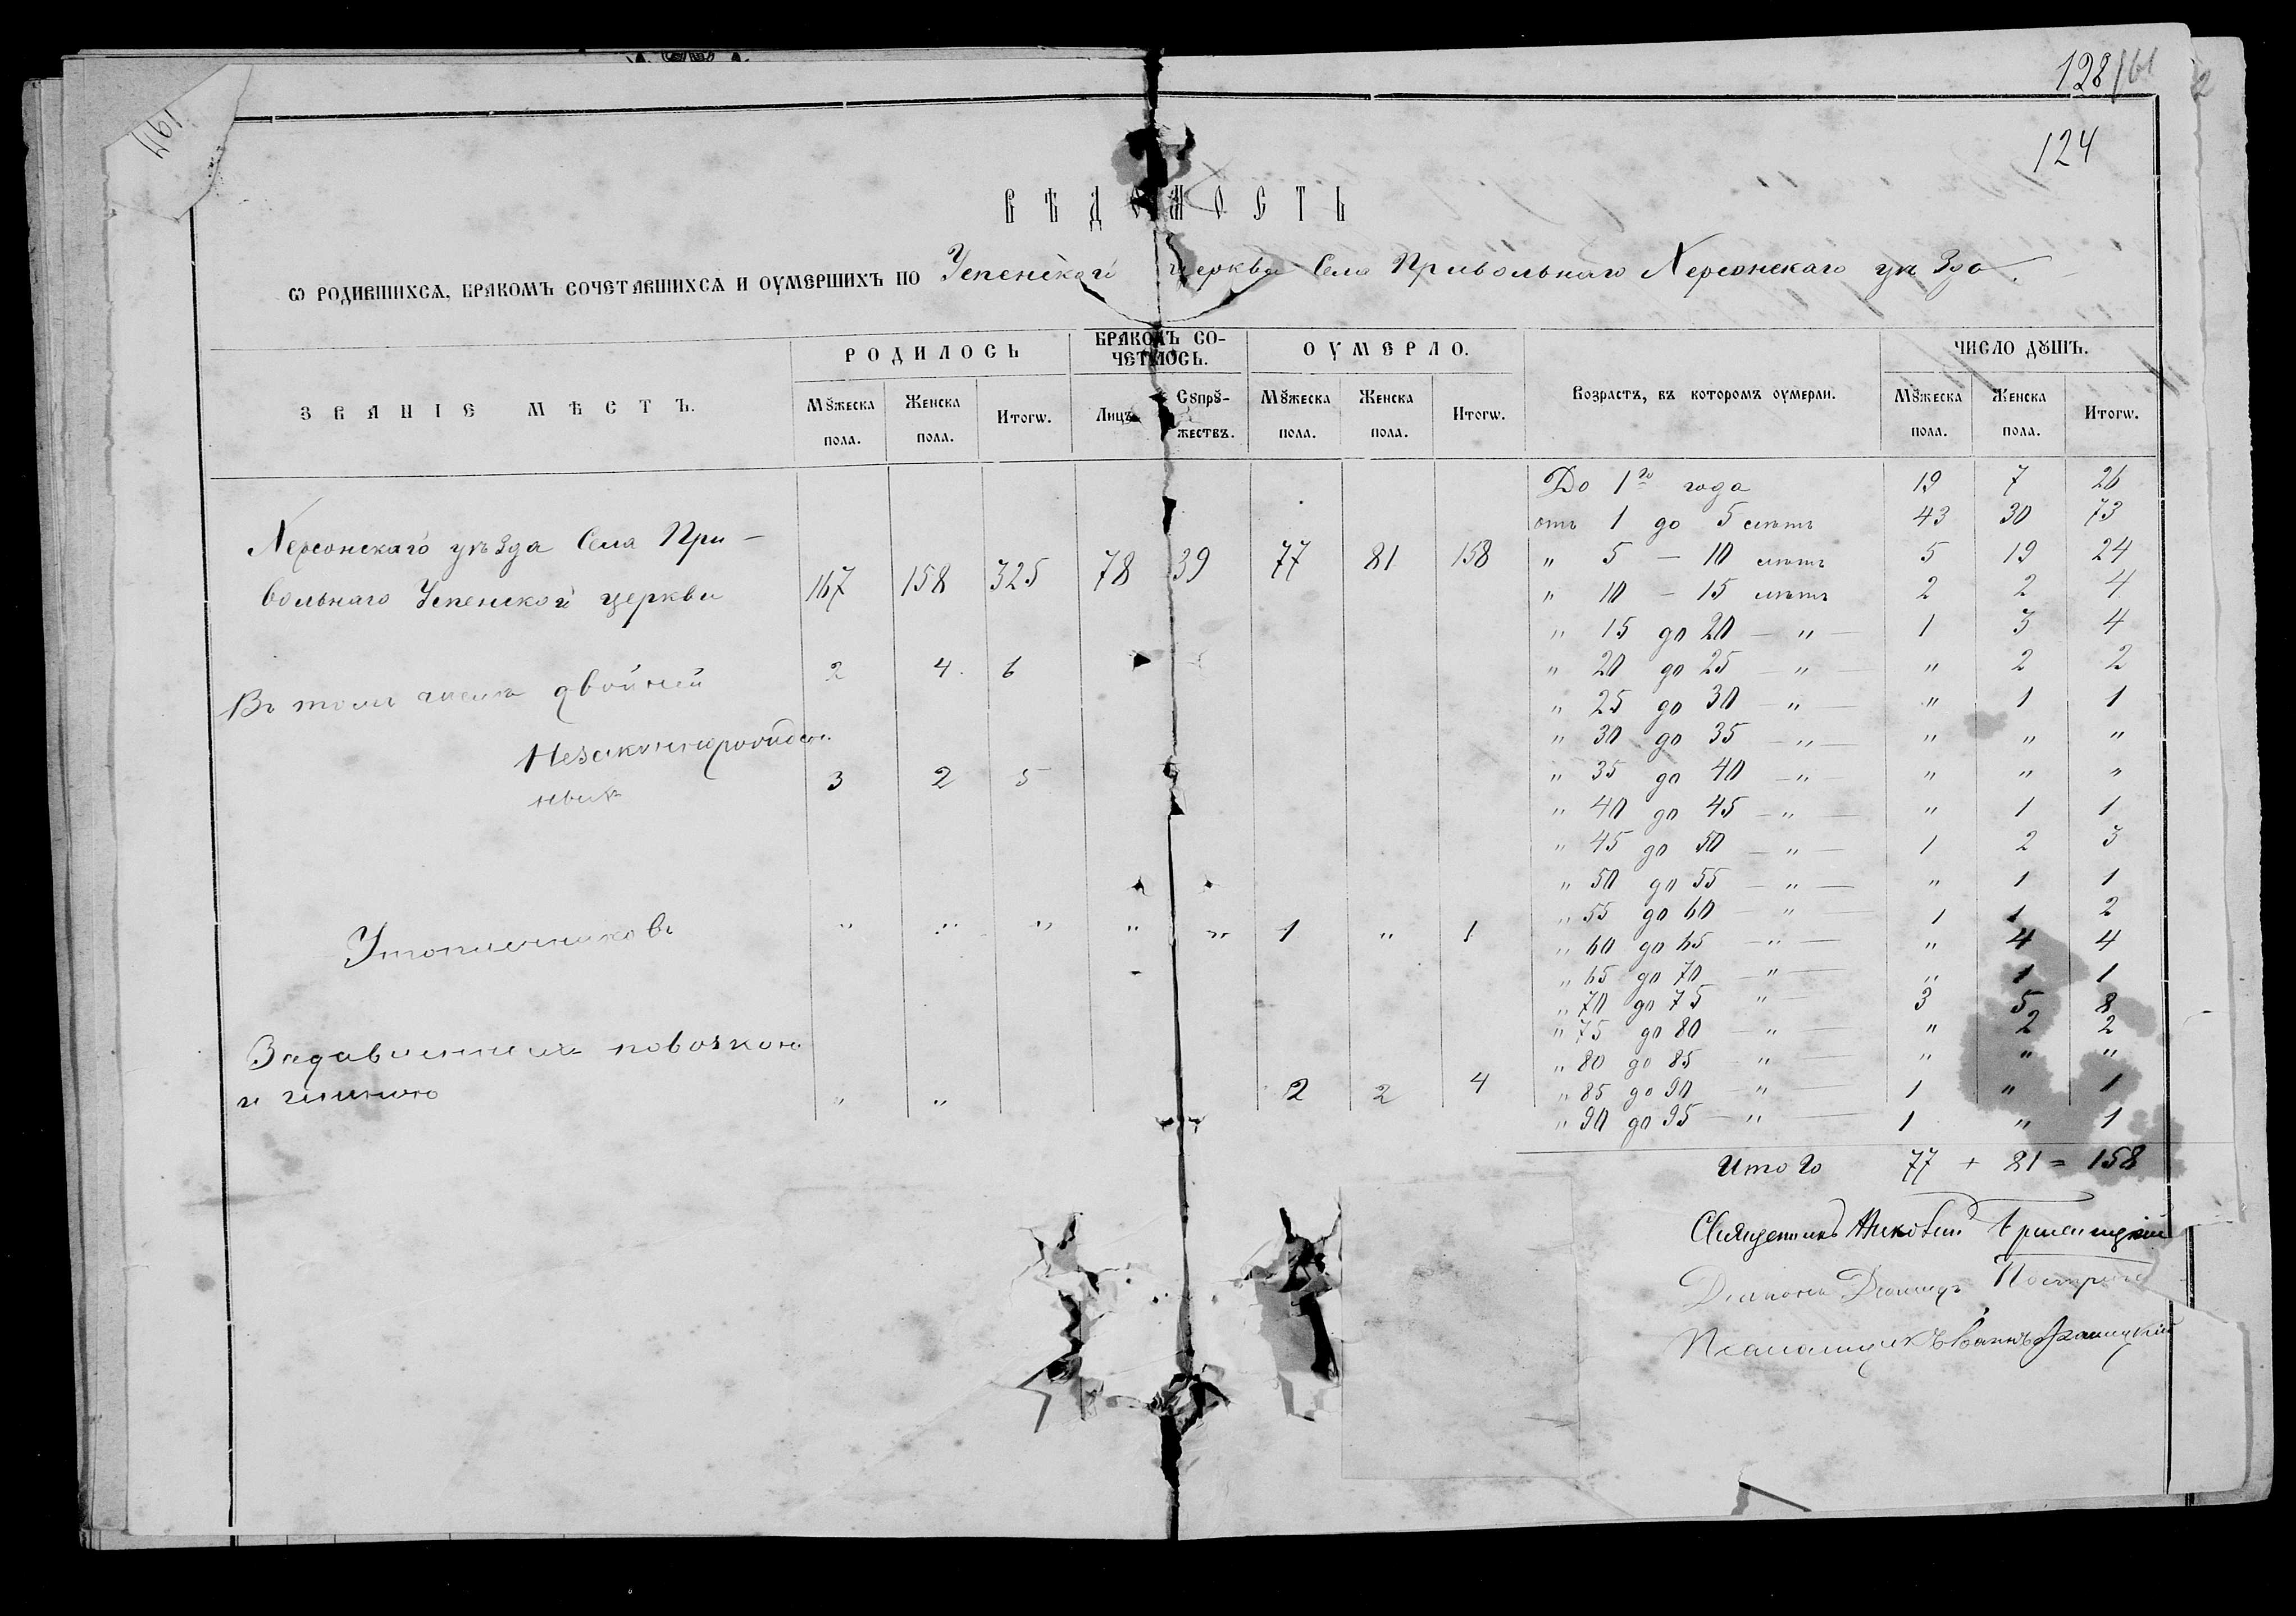 128/61
124
1461
ВѢДОМОСТЬ
Ѡ РОДИВШИХСѦ, БРАКОМЪ СОЧЕТАВШИХСѦ И ОУМЕРШИХЪ ПО Успенской церкви Села Привольнаго Херсонскаго уѣзда.
ЗВАНІЕ МѢСТЪ. РОДИЛОСЬ БРАКОМЪ СО-ЧЕТАЛОСЬ. ОУМЕРЛО. Возрастъ, въ которомъ оумерли. ЧИСЛО ДꙊШЪ.
Мꙋжеска пола. Женска пола. Итогѡ. Лицъ. Сꙋпрꙋ-жествъ. Мꙋжеска пола. Женска пола. Итогѡ. Мꙋжеска пола. Женска пола. Итогѡ.
Херсонскаго уѣзда Села При-
вольнаго Успенской церкви 167 158 325 78 39 77 81 158
Въ томъ числѣ двойней 2 4 6
Незаконнорожден
ныхъ 3 2 5
Утопленниковъ " " " " " 1 " 1
Задавленныхъ повозкою
и глиною " " 2 2 4
До 1го года 19 7 26
отъ 1 до 5 лѣтъ 43 30 73
" 5 – 10 лѣтъ 5 19 24
" 10 – 15 лѣтъ 2 2 4
" 15 до 20 – " – 1 3 4
" 20 до 25 – " – " 2 2
" 25 до 30 – " – " 1 1
" 30 до 35 – " – " " "
" 35 до 40 – " " " "
" 40 до 45 – " – " 1 1
" 45 до 50 – " – 1 2 3
" 50 до 55 – " – " 1 1
" 55 до 60 – " – 1 1 2
" 60 до 65 – " – " 4 4
" 65 до 70 – " – " 1 1
" 70 до 75 " – 3 5 8
" 75 до 80 – " – " 2 2
" 80 до 85 " – " " "
" 85 до 90 " – 1 " 1
" 90 до 95 – " – 1 " 1
Итого 77 + 81 = 158
Священникъ
Діаконъ
Псаломщикъ Иванъ